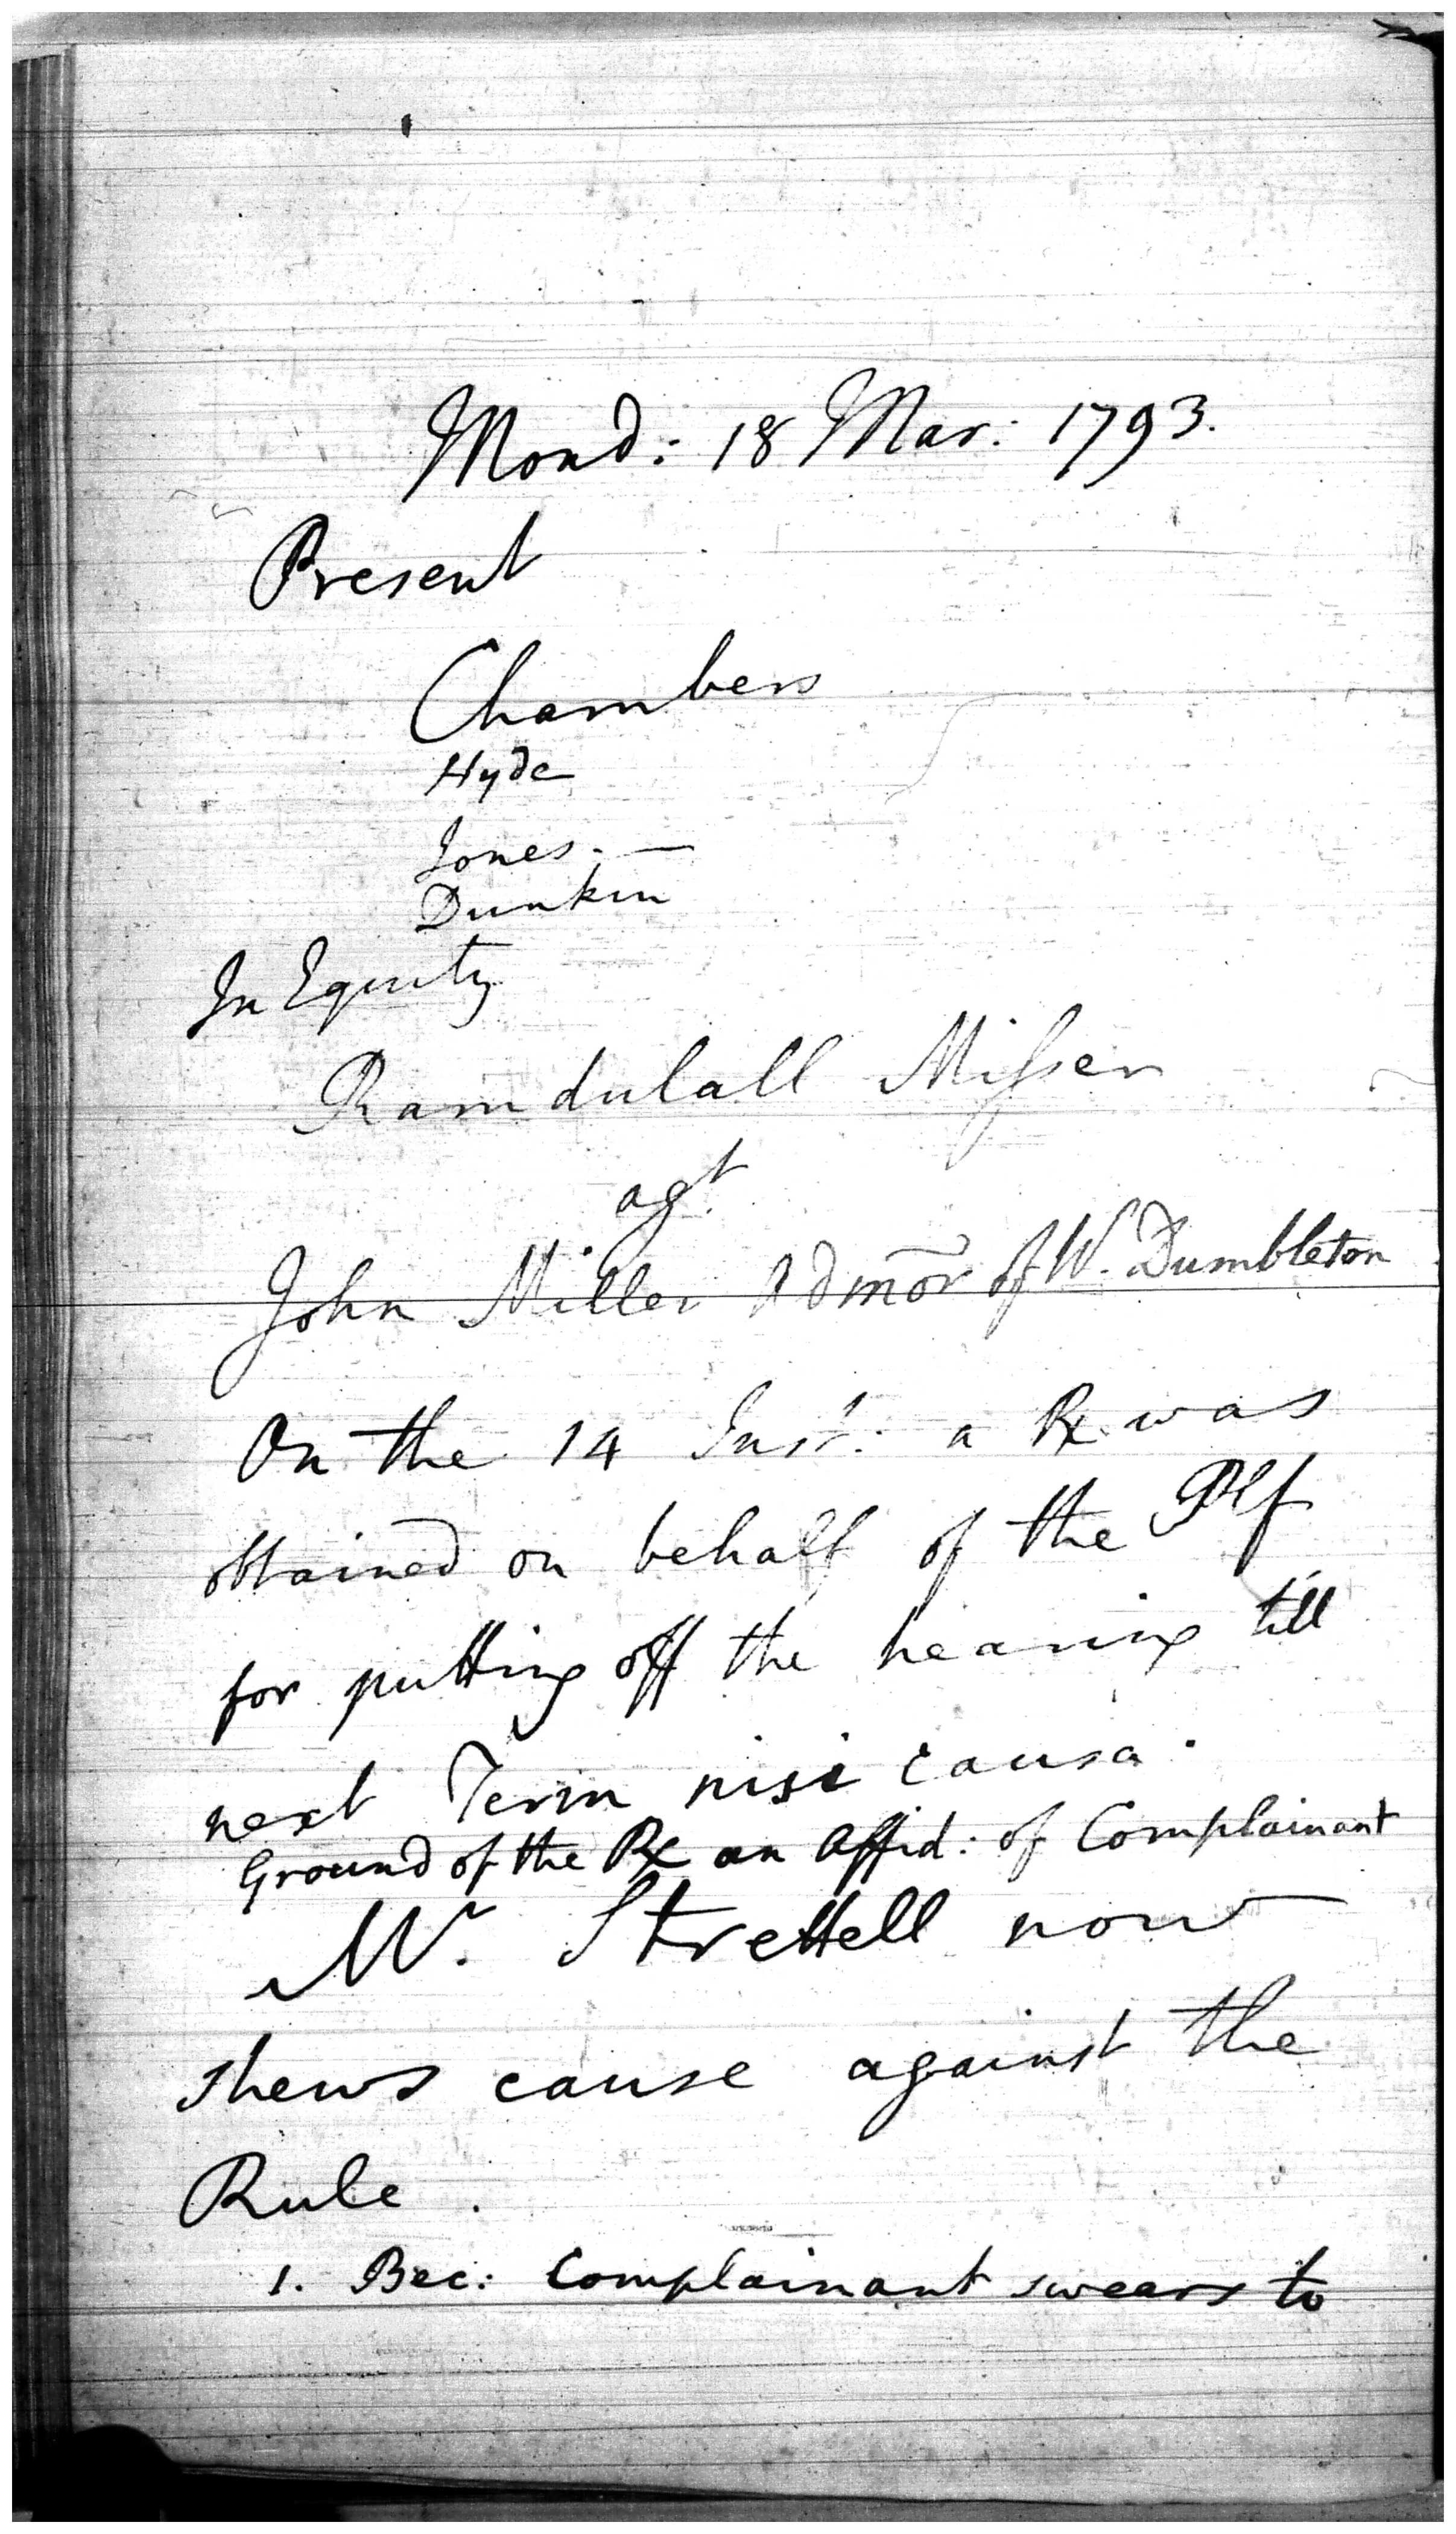 Mond: 18 Mar: 1793.
Present
Chambers
Hyde
Jones. —
Dunkin
In Equity
Ramdulall Misser
agt.
John Miller Admõr of W. Dumbleton
On the 14 Inst: a Rx was
obtained on behalf of the Plf
for putting off the hearing till
next Term nisi causa.
Ground of the Rx an Affid: of Complainant
Mr. Strettell now
shews cause against the
Rule.
1. Bec: Complainant swears to